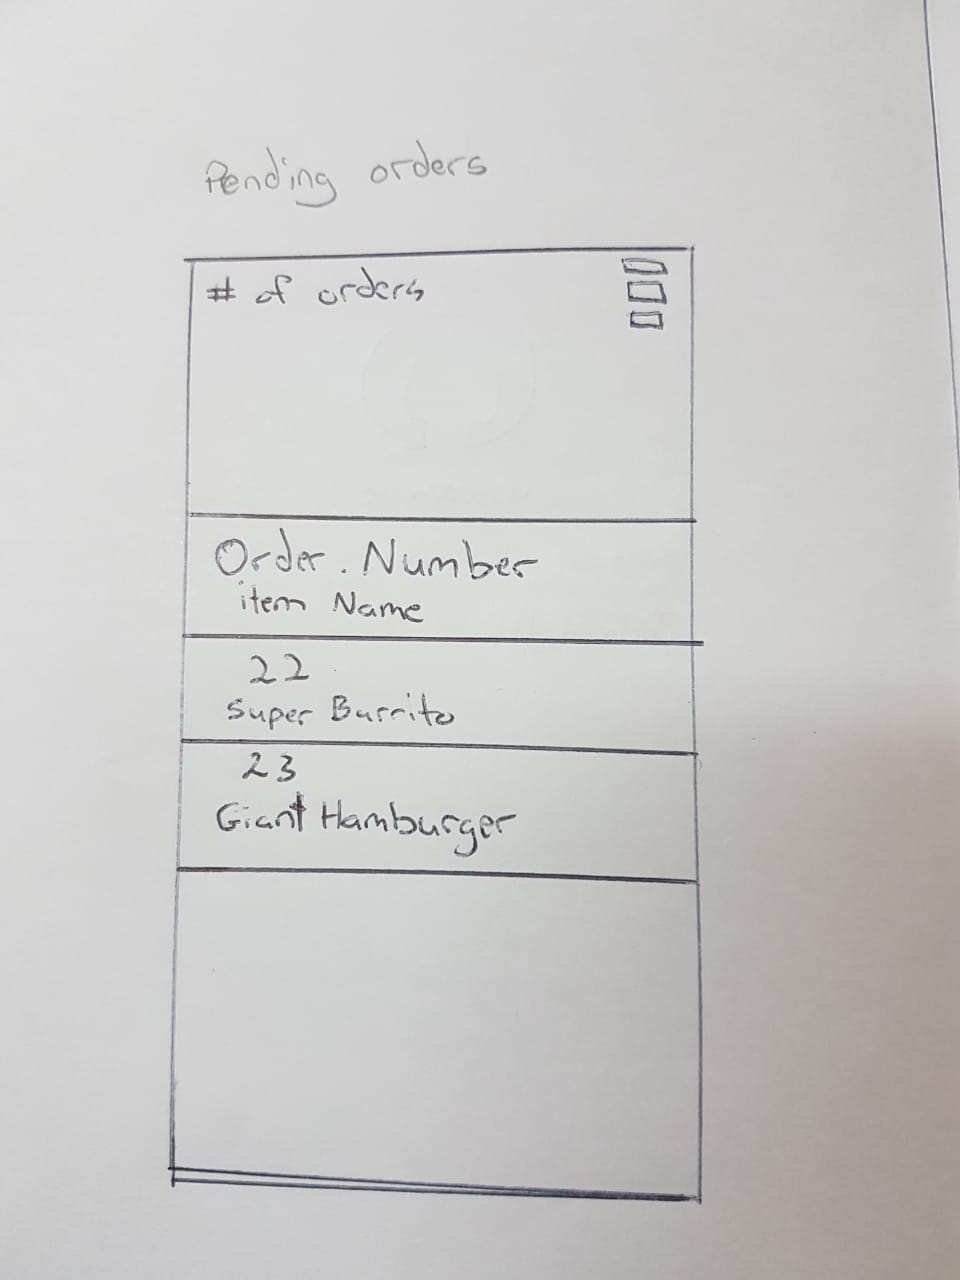 Pending orders
# of orders
Order. Number
item Name
22
Super Burrito
23
Giant Hamburger